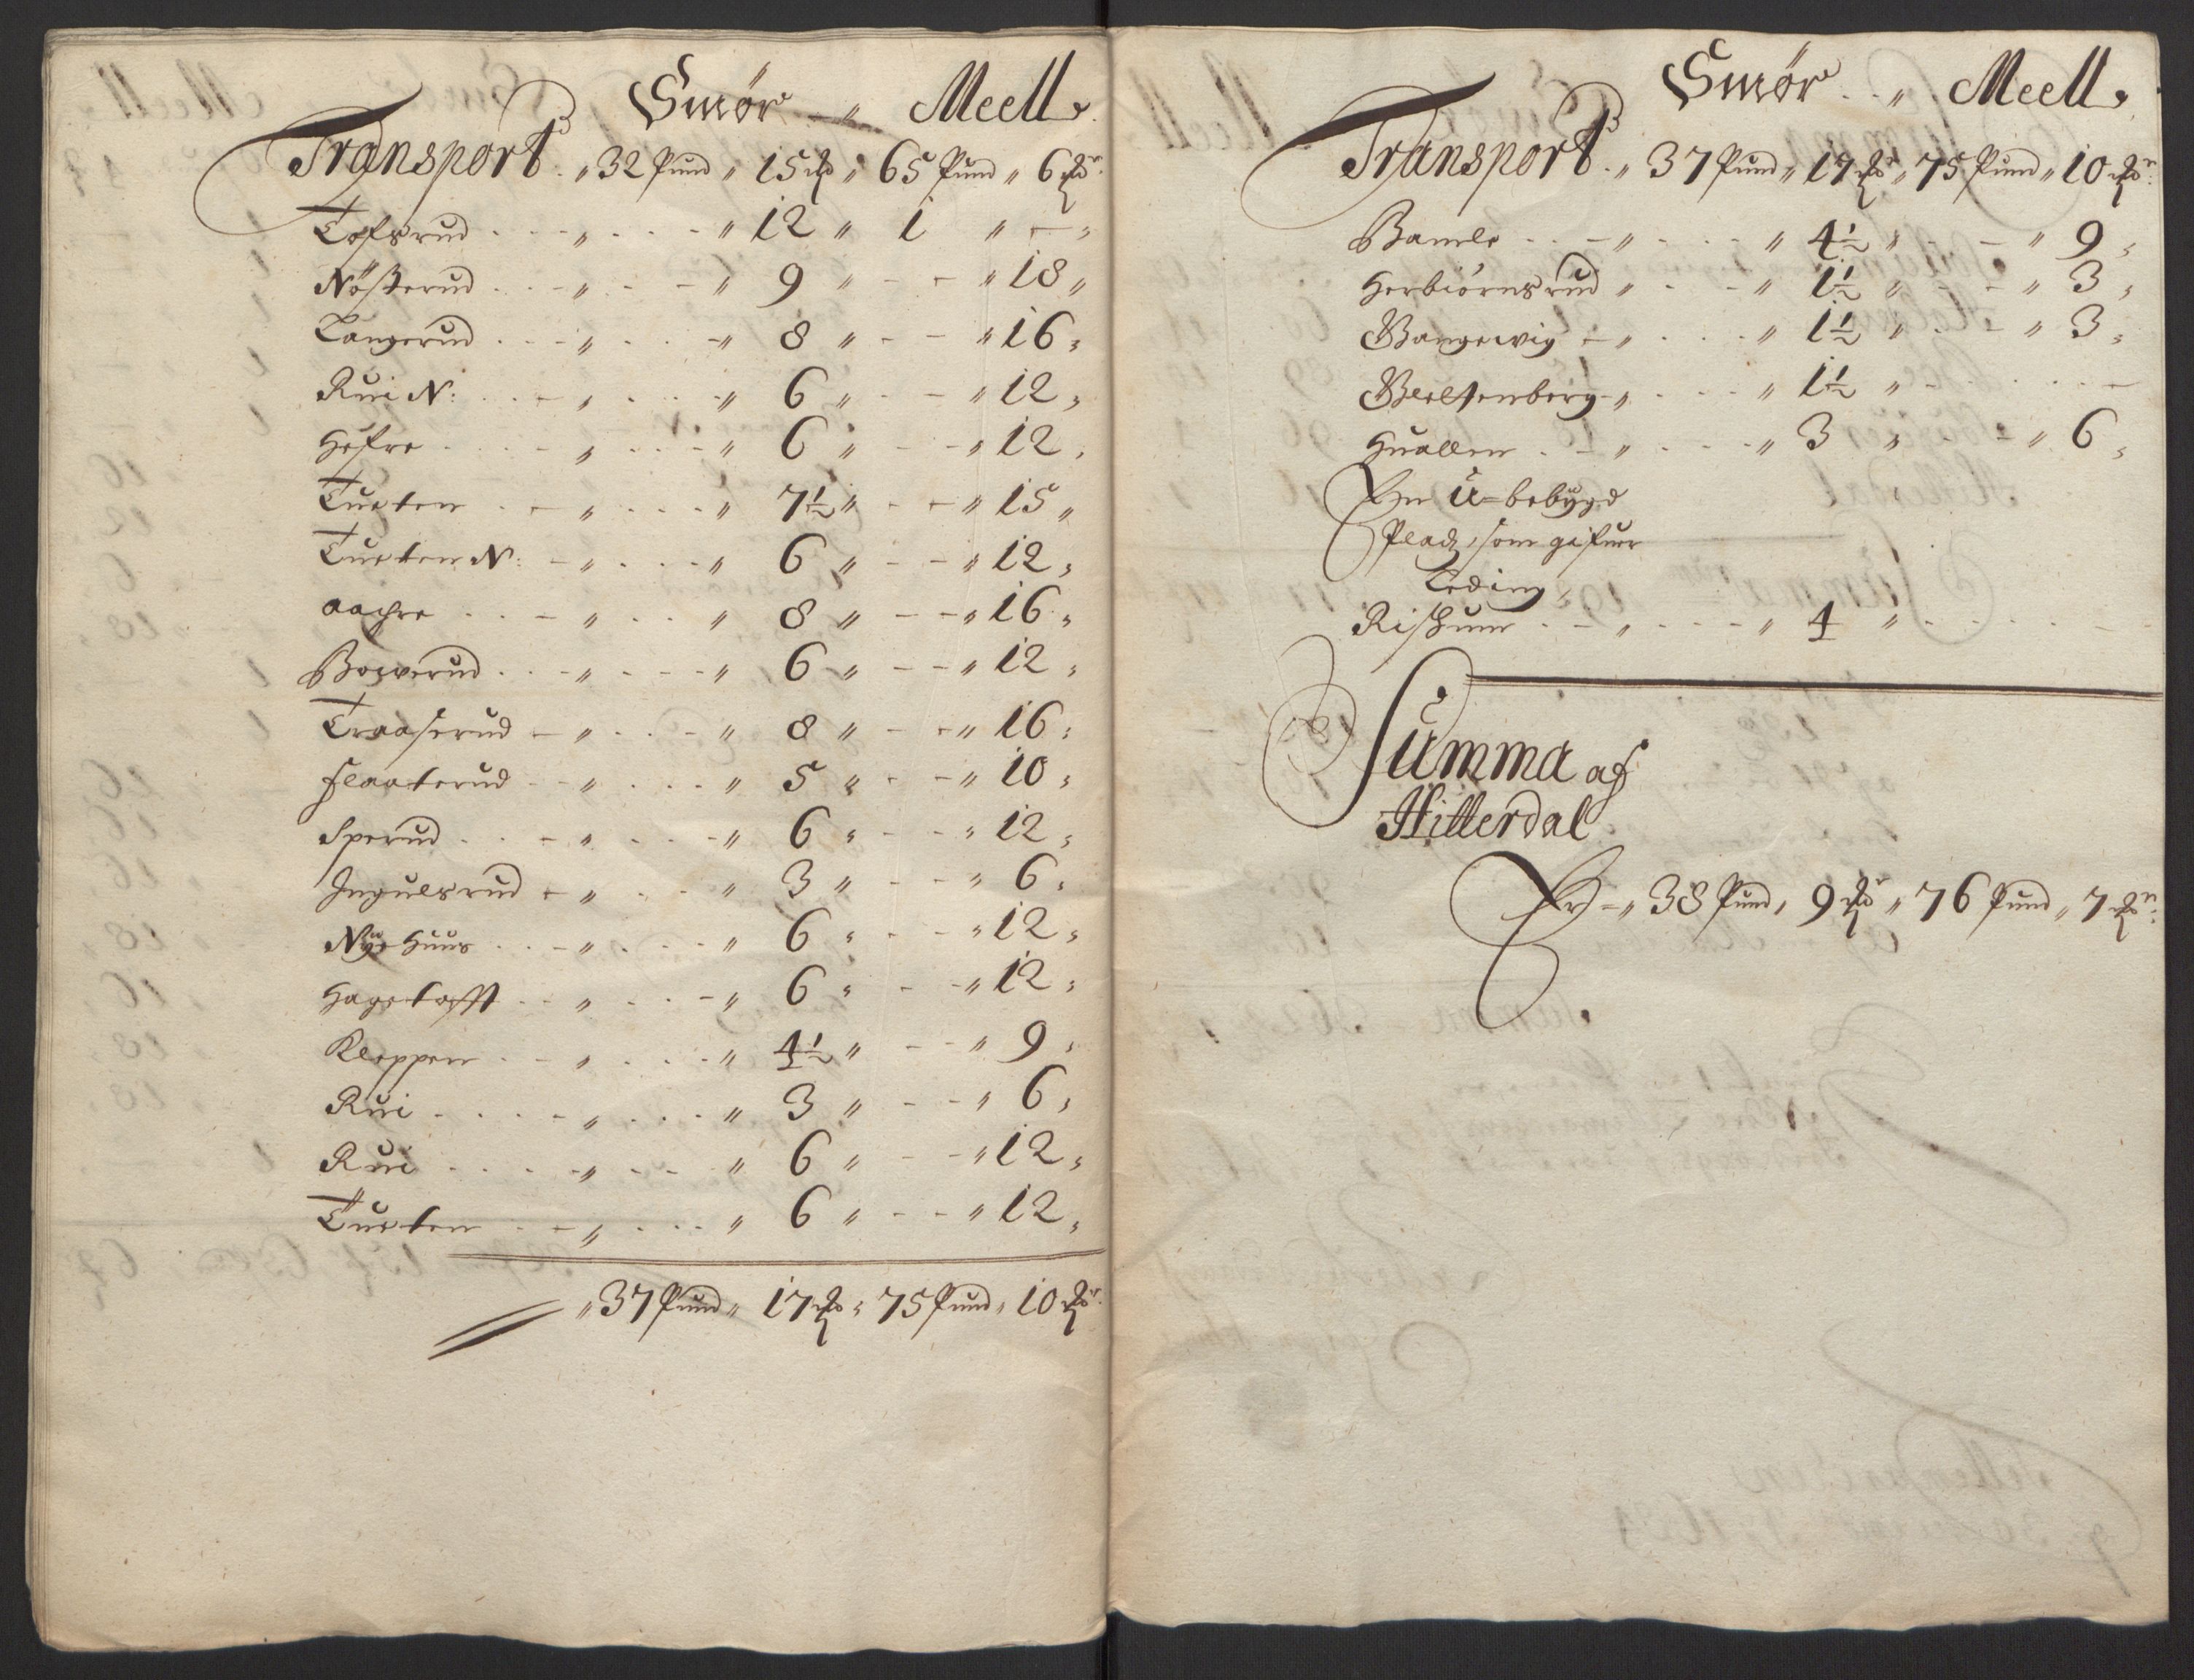 Smör " Meell
Transport " 32 Pund " 15 ℔ " 65 Pund " 6 ℔r
Tofsrud " " 12 " 1 " –
Nößterud " " 9 " – " 18 "
Langerud " " 8 " – " 16 "
Rui N: " " 6 " – " 12 "
Hefre " " 6 " – " 12 "
Tueten " " 7½ " – " 15 "
Tueten N: " " 6 " – " 12 "
Aachre " " 8 " – " 16 "
" " 6 " – " 12 "
Traaserud " " 8 " – " 16 "
Flaaterud " " 5 " – " 10 "
Sperud " " 6 " – " 12 "
Ingulsrud " " 3 " – " 6 "
Nyehuus " " 6 " – " 12 "
Hagetofft " " 6 " – " 12 "
Kleppen " " 4½ " – " 9 "
Rui " " 3 " – " 6 "
Rui " " 6 " – " 12 "
Tueten " " 6 " – " 12 "
" 37 Pund " 17 ℔ " 75 Pund " 10 ℔r
Smör " Meell
Transport " 37 Pund " 17 ℔r " 75 Pund " 10 ℔r
Bamle " " 4½ " – " 9 "
Herbiörnsrud " " 1½ " – " 3 "
" " 1½ " – " 3 "
" " 1½ " –
Huallen " " 3 " – " 6 "
En U-bebygd
Pladz, som gifuer
Leding
" " 4 " –
Summa af
Hitterdal
Er " 38 Pund " 9 ℔r " 76 Pund " 7 ℔r